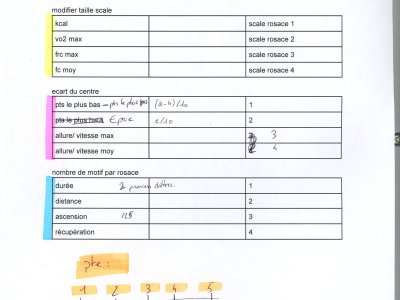 modifier taille scale
kcal scale rosace 1
vo2 max scale rosace 2
frc max scale rosace 3
fc moy scale rosace 4
ecart du centre
pts le plus bas - pts le plus bas (a-b)/10 1
pts le plus haut Epoc e/10 2
allure/ vitesse max 3
allure/ vitesse moy 4
nombre de motif par rosace
durée 2 premiers chiffres. 1
distance 2
ascension 125 3
récupération 4
pke :
1 2 3 4 5